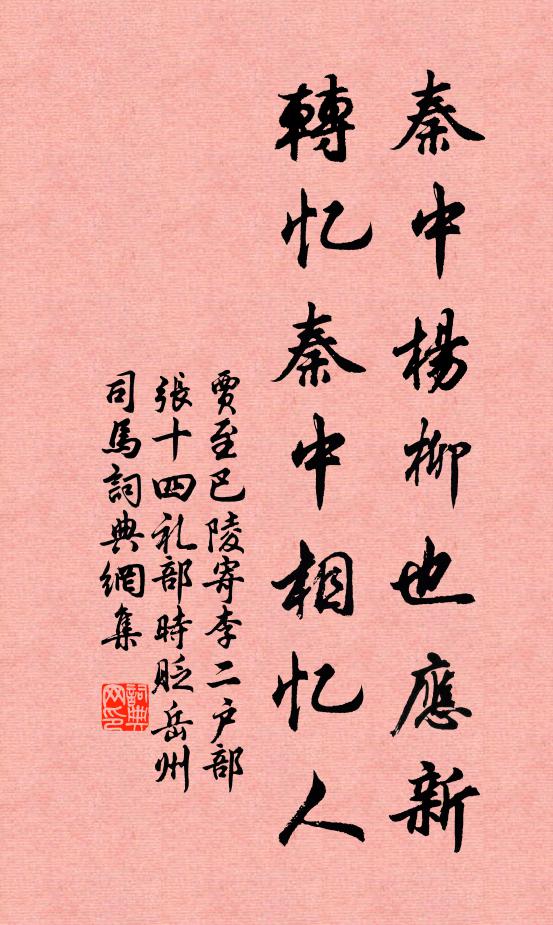 秦中楊柳也應新
轉忆秦中相忆人
賈至巴陵寄李二户部
張十四礼部時貶岳州
司馬詞典網集
詞典网印